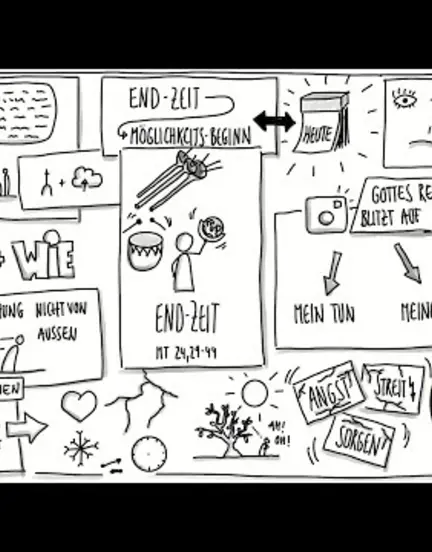 END-ZEIT
MÖGLICHKEITS-BEGINN
HEUTE
+
GOTTES
BLITZT AUF
WIE
MEIN TUN
NICHT VON
AUSSEN
END-ZEIT
MT 24,29-44
ANGST
STREIT
SORGEN
AH!
OH!